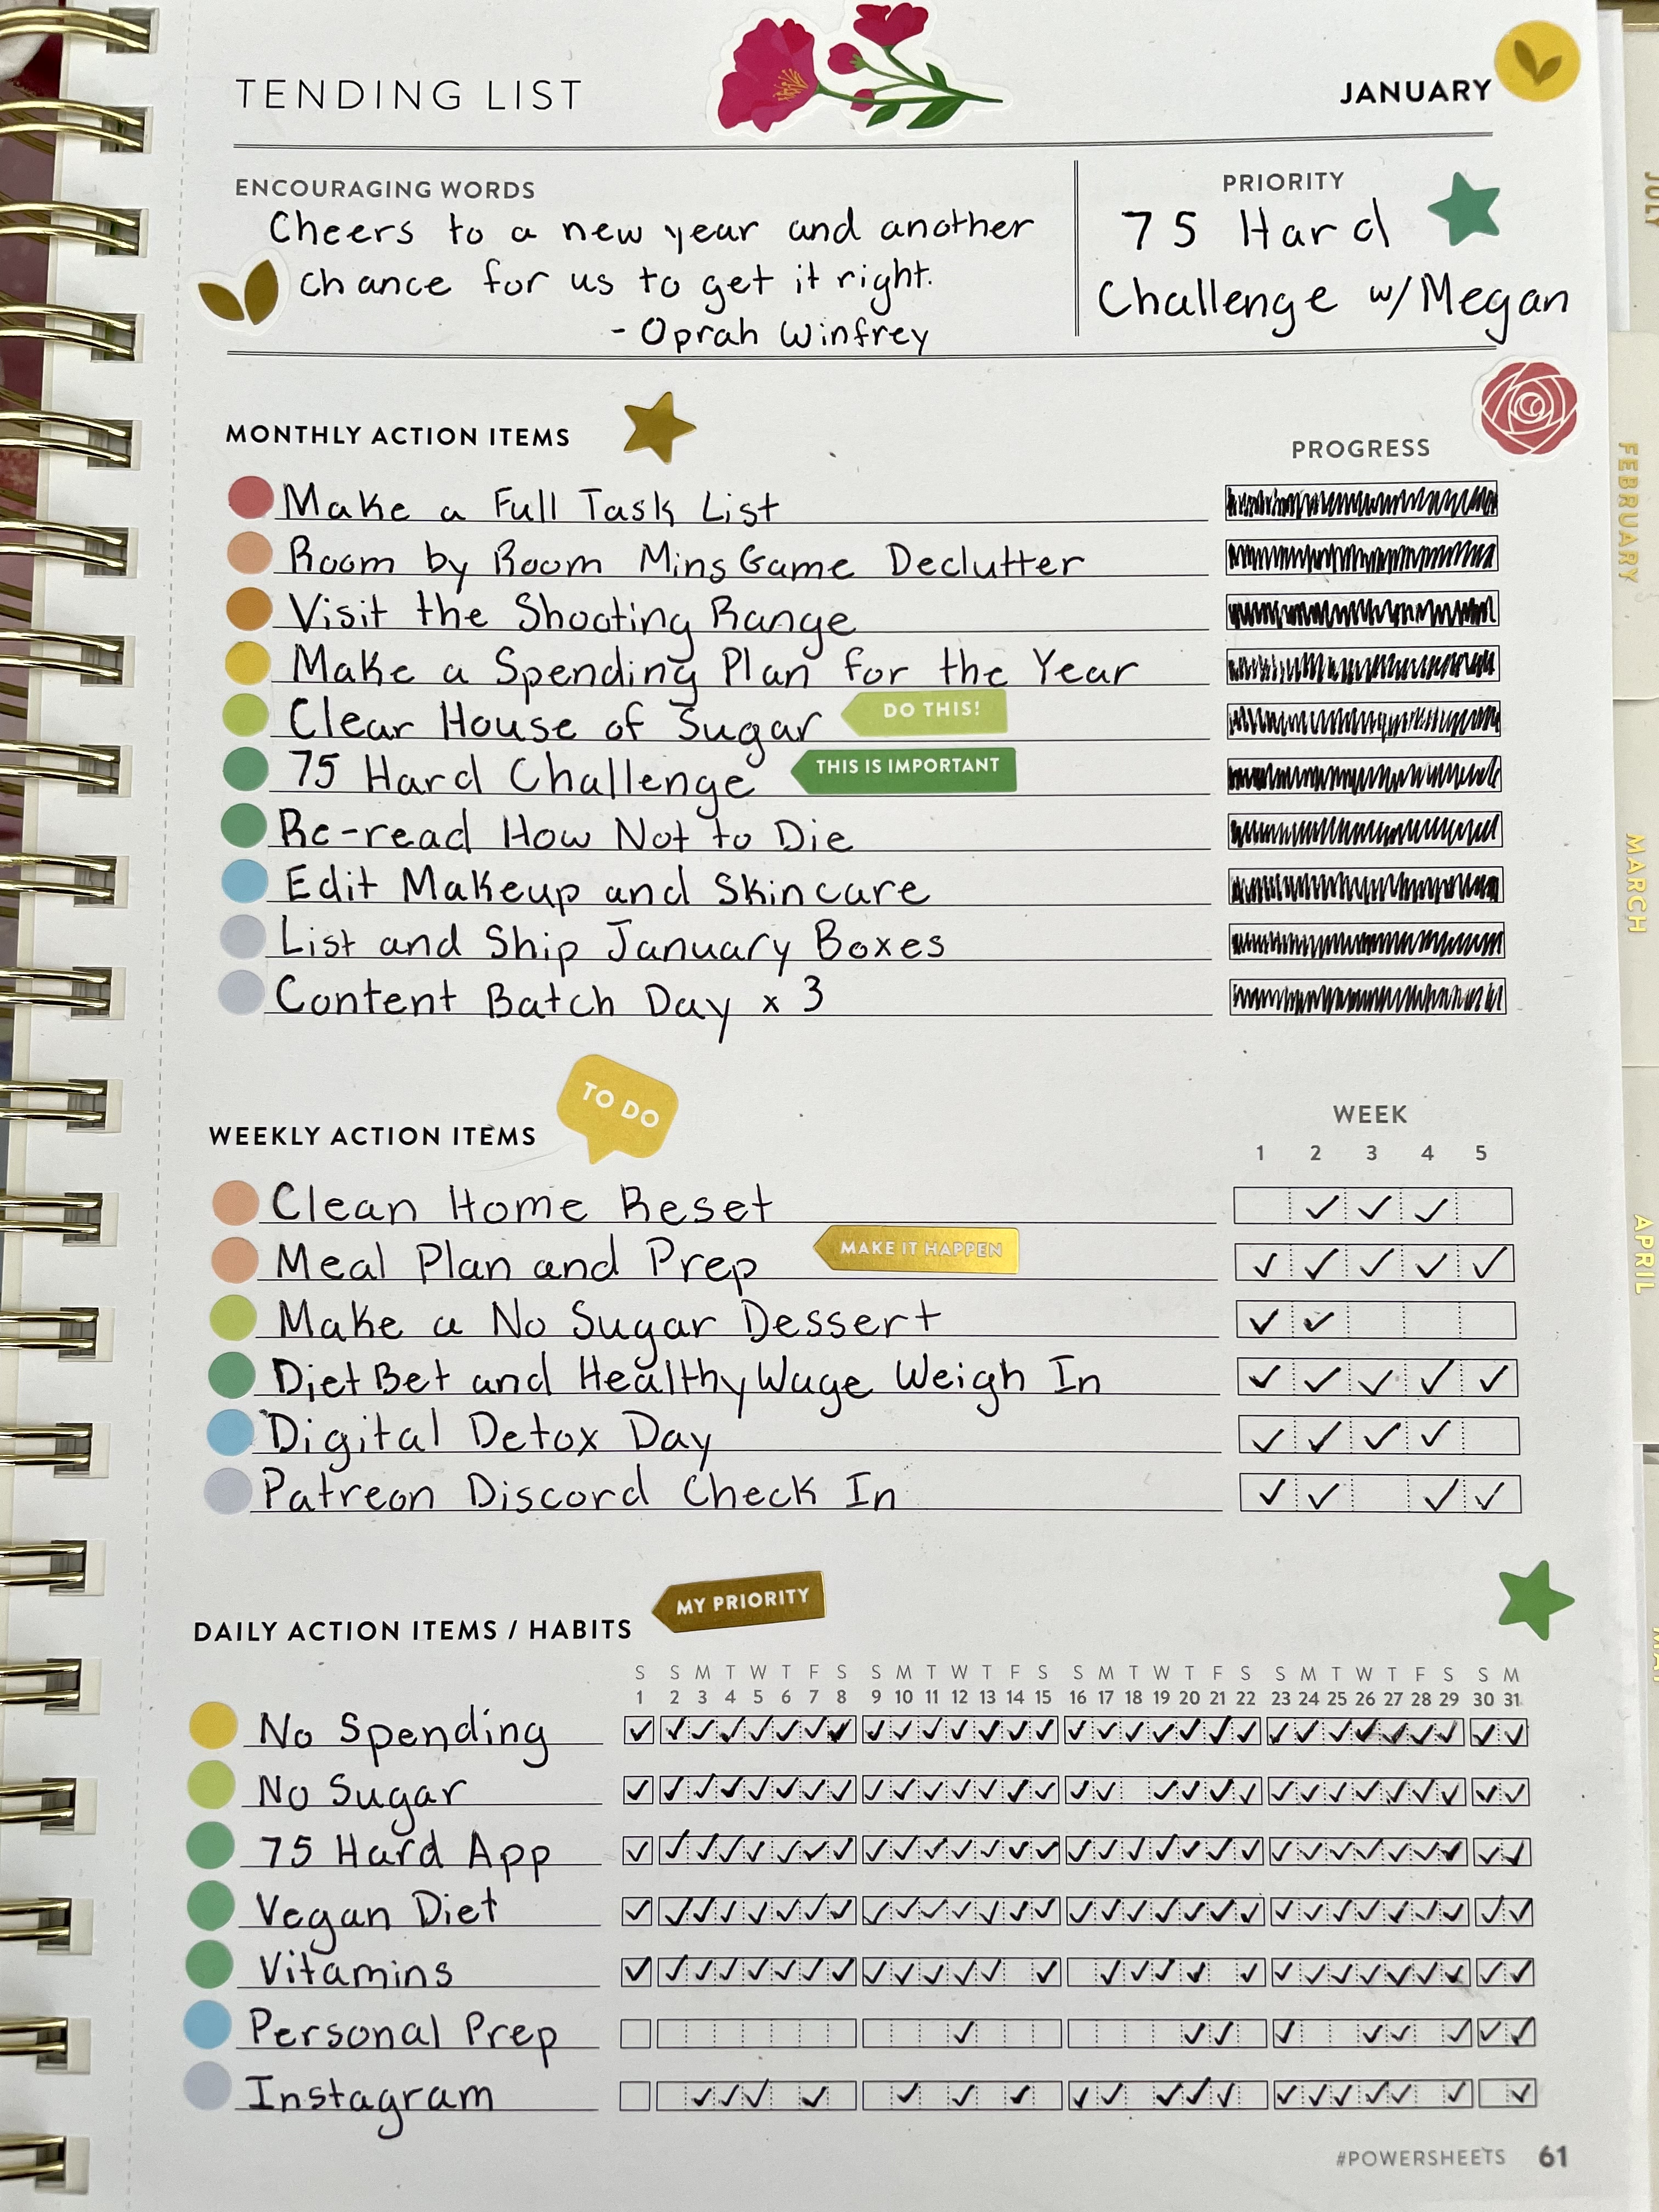 TENDING LIST
JANUARY
ENCOURAGING WORDS
Cheers to a new year and another
chance for us to get it right.
- Oprah Winfrey
PRIORITY
75 Hard
Challenge w/ Megan
MONTHLY ACTION ITEMS
PROGRESS
Make a Full Task List
Room by Room Mins Game Declutter
Visit the Shooting Range
Make a Spending Plan for the Year
Clear House of Sugar DO THIS!
75 Hard Challenge THIS IS IMPORTANT
Re-read How Not to Die
Edit Makeup and Skincare
List and Ship January Boxes
Content Batch Day x 3
TO DO
WEEKLY ACTION ITEMS
WEEK
1 2 3 4 5
Clean Home Reset
Meal Plan and Prep MAKE IT HAPPEN
Make a No Sugar Dessert
DietBet and HealthyWage Weigh In
Digital Detox Day
Patreon Discord Check In
MY PRIORITY
DAILY ACTION ITEMS / HABITS
S S M T W T F S S M T W T F S S M T W T F S S M T W T F S S M
1 2 3 4 5 6 7 8 9 10 11 12 13 14 15 16 17 18 19 20 21 22 23 24 25 26 27 28 29 30 31
No Spending
No Sugar
75 Hard App
Vegan Diet
Vitamins
Personal Prep
Instagram
#POWERSHEETS 61
JULY
FEBRUARY
MARCH
APRIL